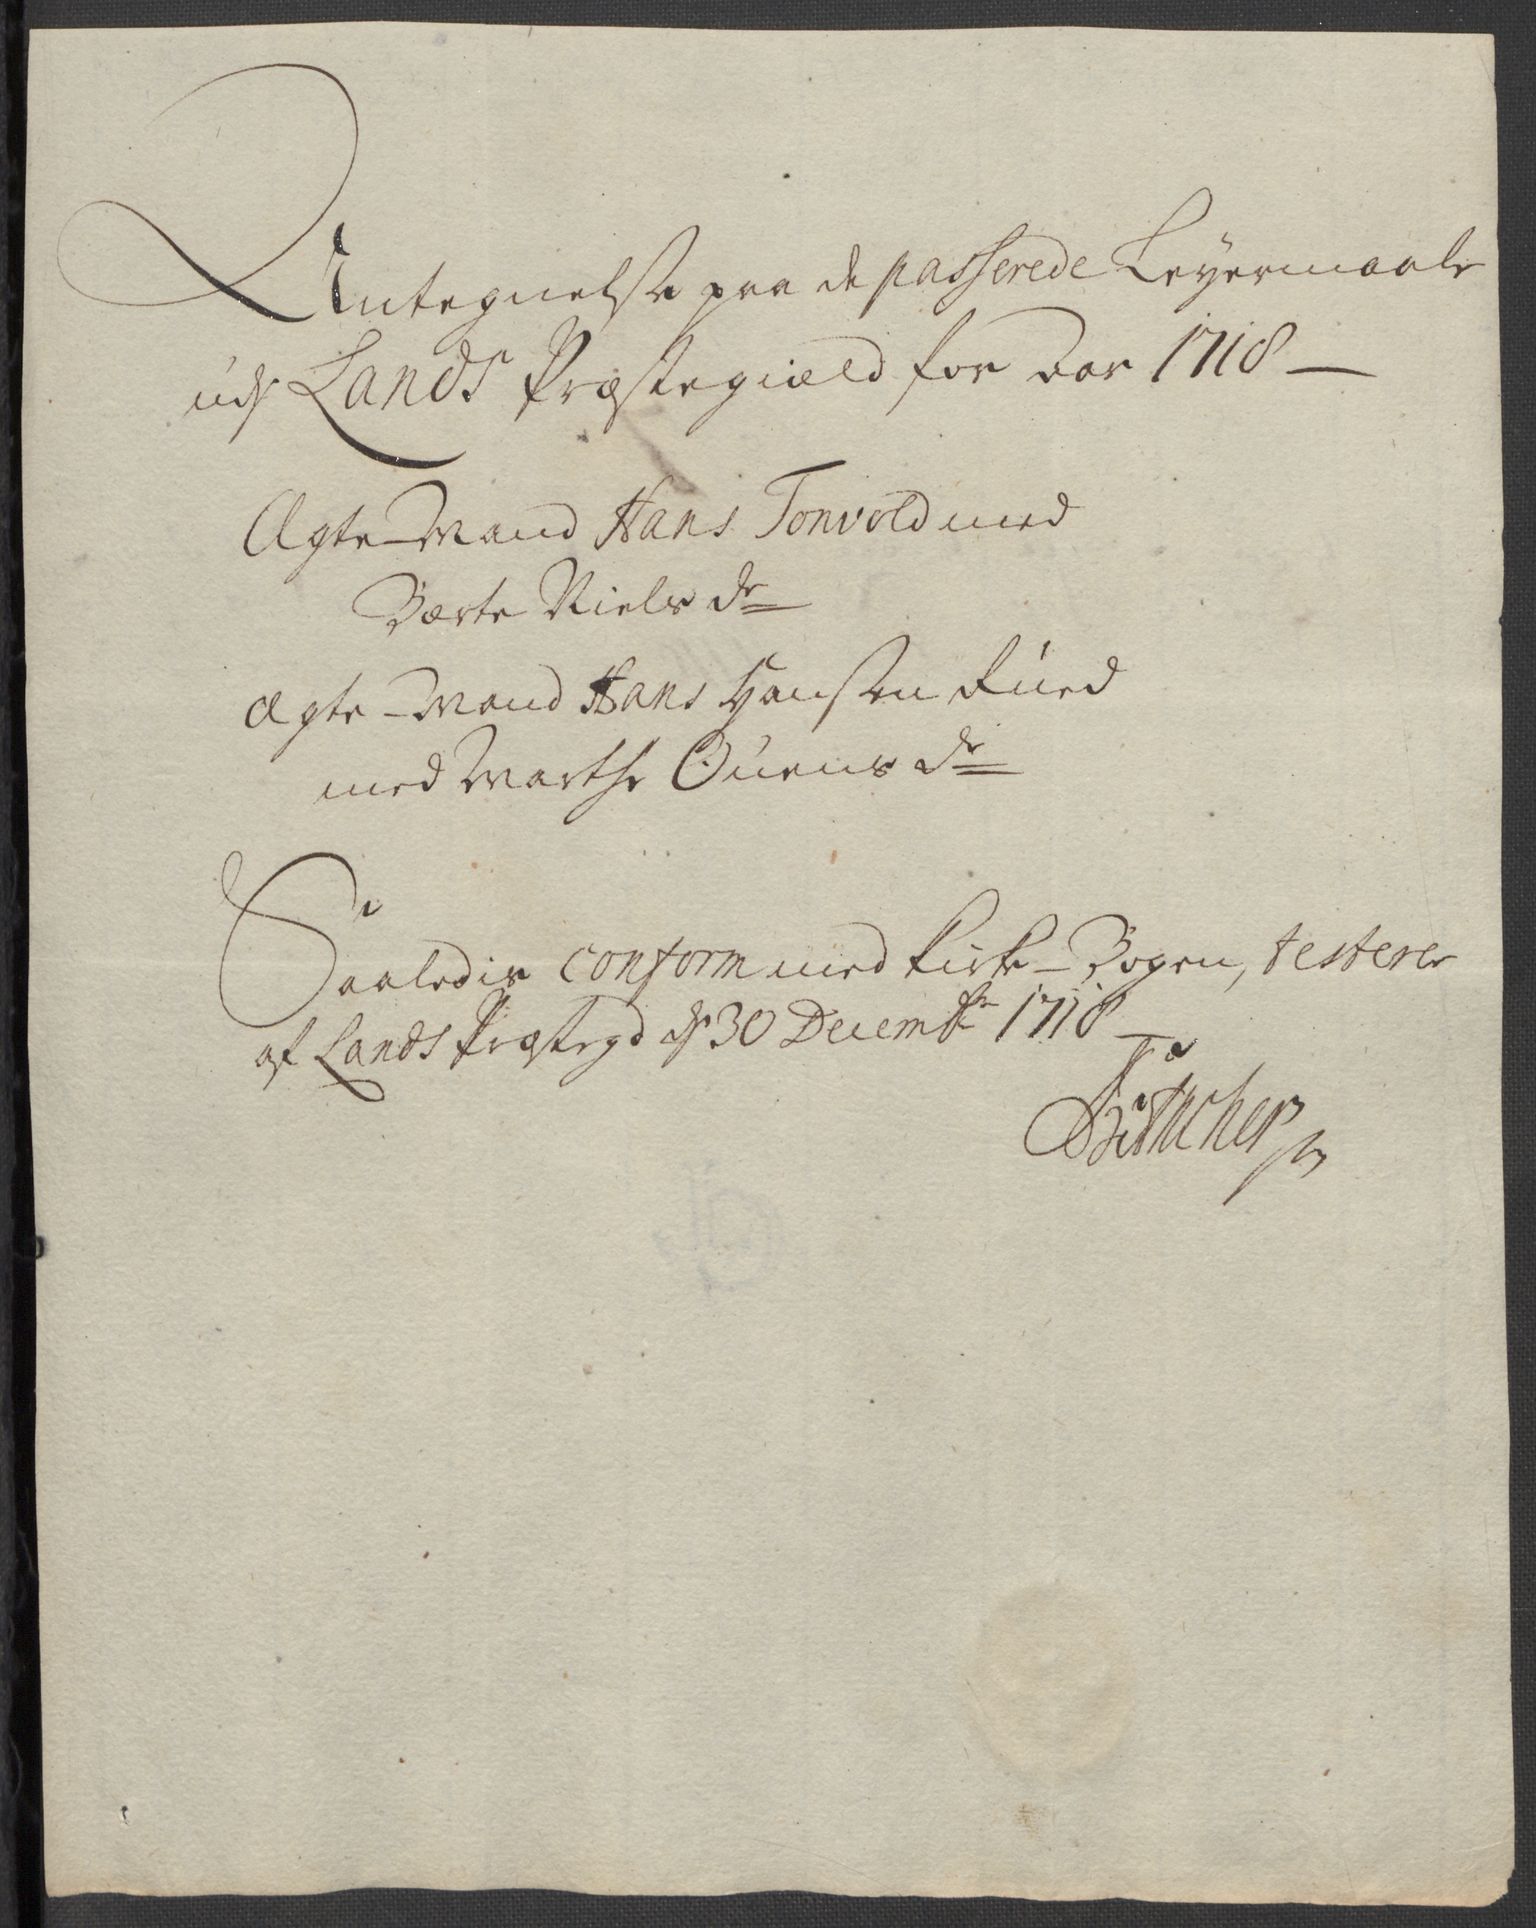 Antegnelse paa de passerede Leyermaale
udj Lands Præstegiæld for Aar 1718 —
Ægte-Mand Hans Tonvold med
Bærte Niels dr
Ægte-Mand Hans Hansen Rued
med Marthe Ouens dr
Saaledis conform med Kirke-Bogen, testerer
af Lands Præstegd d 30 Decembr 1718
Bøtticher